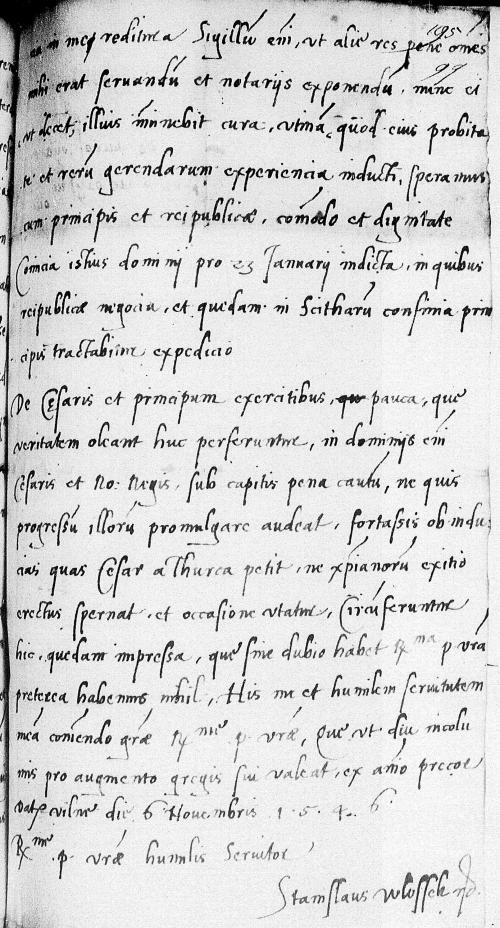 in meq reditura Sigillū em̄, vt alie res pene om̄es
195
99
mihi erat seruandū et notarijs exponendū, nunc ei
vt decet, illius imminebit cura, vtinā, quod eius probita
te et rerū gerendarum experiencia inducti, speramus
cum principis et reipublicæ, com̄odo et dignitate
Comicia istius dominij pro 23 Januarij indicta, in quibus
reipublicæ negocia, et quedam in Scitharū confinia prin
cipis tractabitur expedicio
De Cęsaris et principum exercitibus, pauca, que
veritatem oleant huc perferuntur, in dominijs em̄
Cęsaris et Ro: Regis, sub capitis pena cautū, ne quis
progressū illorū promulgare audeat, fortassis ob indu
cias quas Cęsar a Thurca petit, ne xp̄ianorū exitio
erectus spernat, et occasione vtatur, Circūferuntur
hic, quedam impressa, que sine dubio habet R̄ma p vrā
preterea habemus nihil, His me et humilem seruitutem
meā com̄endo grāe R̄me p. vrāe, Que vt diu incolu
mis pro augmento gregis sui valeat, ex aīo precor
Datę vilne die 6 Nouembris 1 5 4 6
R̄me p. vrāe humilis Seruitor
Stanislaus Wlossek